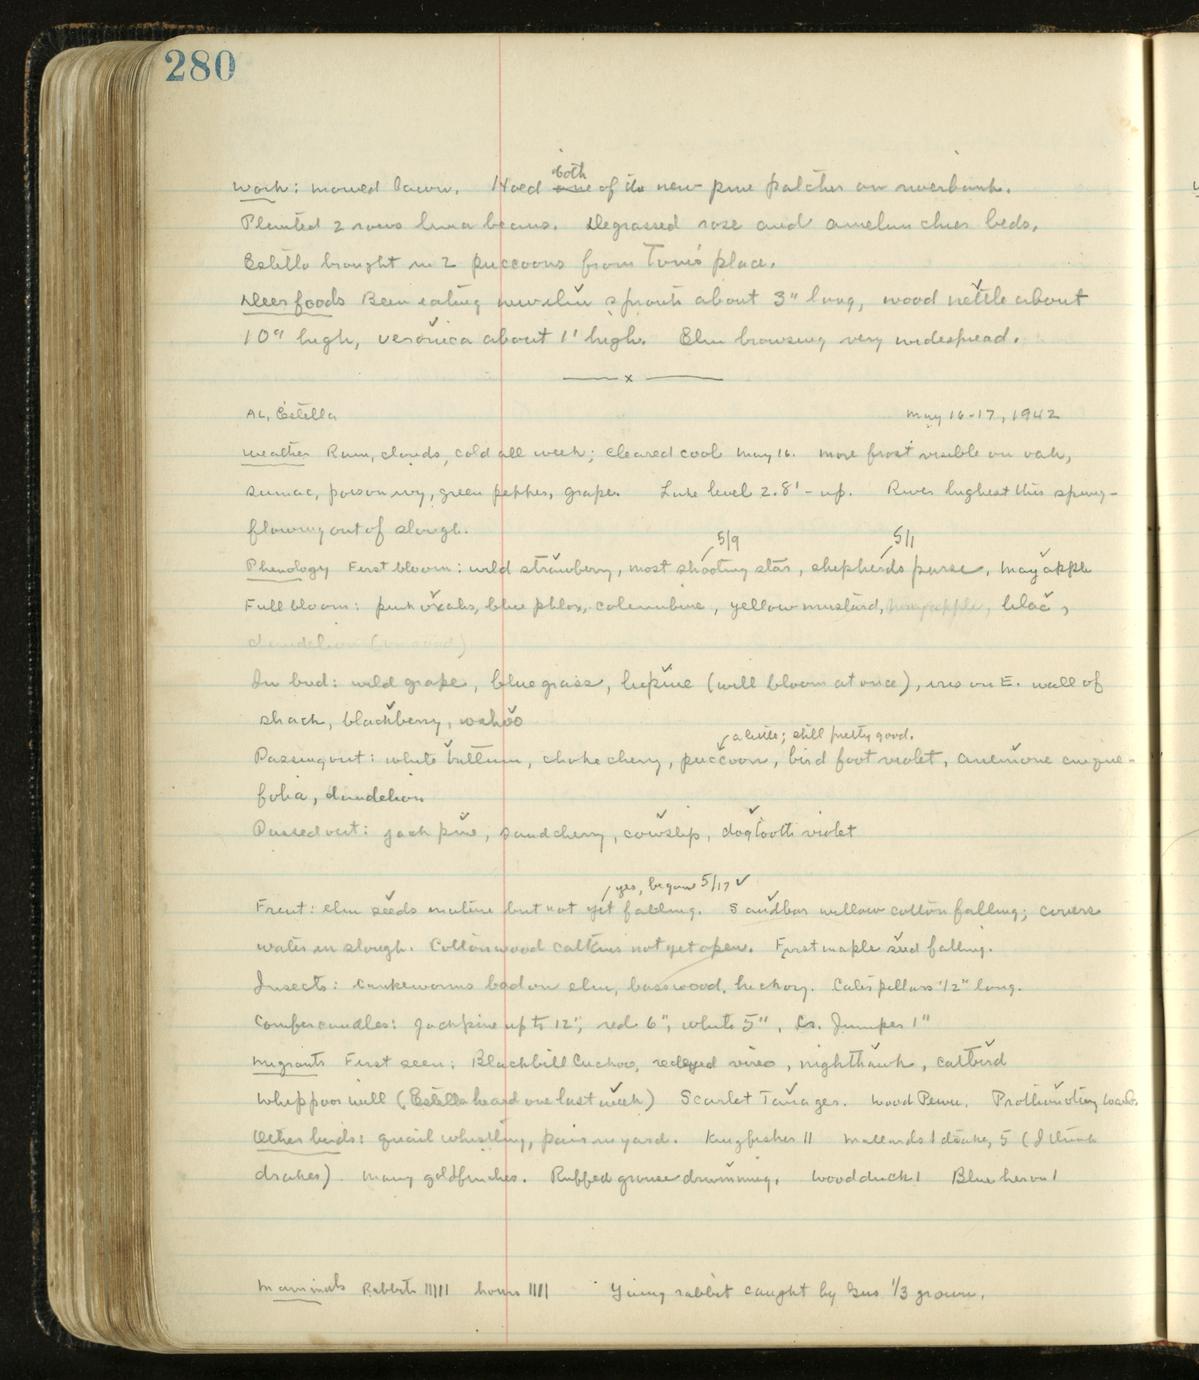 280
both
Work: mowed lawn. Hoed one of the new pine patches on riverbank.
Planted 2 rows lima beans. Degrassed rose and amelanchier beds.
Estella brought in 2 puccoons from Tom's place.
Deer foods Been eating new elm sprouts about 3" long, wood nettle about
10" high, veronica about 1' high. Elm browsing very widespread.
x
AL, Estella May 16-17, 1942
Weather Rain, clouds, cold all week; cleared cool May 16. More frost visible on oak,
sumac, poison ivy, green pepper, grape. Lake level 2.8' - up. River highest this spring -
flowing out of slough.
5/9 5/1
Phenology First bloom: wild strawberry, most shooting star, shepherds purse, Mayapple
Full bloom: pink oxalis, blue phlox, columbine, yellow mustard, mayapple, lilac,
dandelion
In bud: wild grape, bluegrass, lupine (will bloom at once), iris on E. wall of
shack, blackberry, wahoo
a little; still pretty good.
Passing out: white trillium, choke cherry, puccoon, bird foot violet, anemone cinque-
folia, dandelion
Passed out: jack pine, sand cherry, cowslip, dogtooth violet
yes, began 5/17
Fruit: elm seeds mature but not yet falling. Sandbar willow cotton falling; covers
water in slough. Cottonwood catkins not yet open. First maple seed falling.
Insects: Cankerworms bad on elm, basswood, hickory. Caterpillars 1/2" long.
Conifer candles: Jackpine up to 12", red 6", white 5", Cr. Juniper 1"
Migrants First seen: Blackbill Cuckoo, redeyed vireo, nighthawk, catbird
Whippoorwill (Estella heard one last week) Scarlet Tanager. Wood Pewee. Prothonotary Warb.
Other birds: quail whistling, pair in yard. Kingfisher II Mallards 1 drake, 5 (I think
drakes). Many goldfinches. Ruffed grouse drumming. Woodduck 1 Blue heron 1
Mammals Rabbits IIIII IIII Young rabbit caught by Gus 1/3 grown.